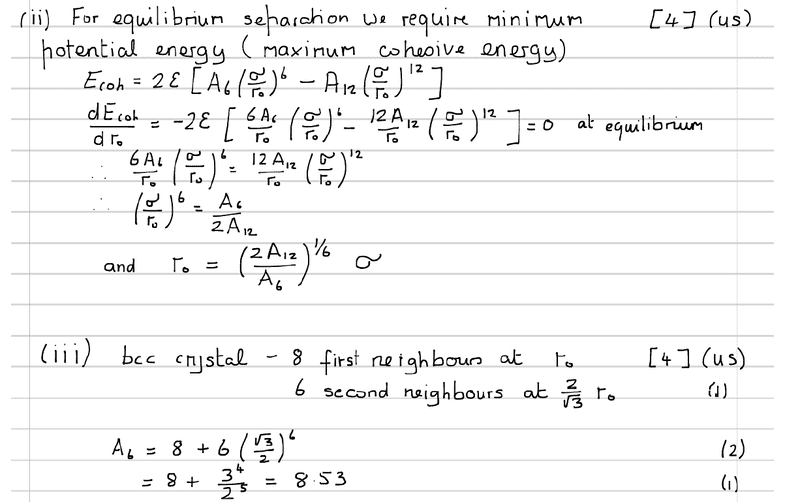 (ii) For equilibrium separation we require minimum [4] (us)
potential energy (maximum cohesive energy)
E_coh = 2ε [ A_6 (σ/r_0)^6 − A_12 (σ/r_0)^12 ]
dE_coh/dr_0 = −2ε [ 6A_6/r_0 (σ/r_0)^6 − 12A_12/r_0 (σ/r_0)^12 ] = 0 at equilibrium
∴ 6A_6/r_0 (σ/r_0)^6 = 12A_12/r_0 (σ/r_0)^12
∴ (σ/r_0)^6 = A_6/2A_12
and r_0 = (2A_12/A_6)^1/6 σ
(iii) bcc crystal - 8 first neighbours at r_0 [4] (us)
6 second neighbours at 2/√3 r_0 (1)
A_6 = 8 + 6 (√3/2)^6 (2)
= 8 + 3^4/2^5 = 8.53 (1)